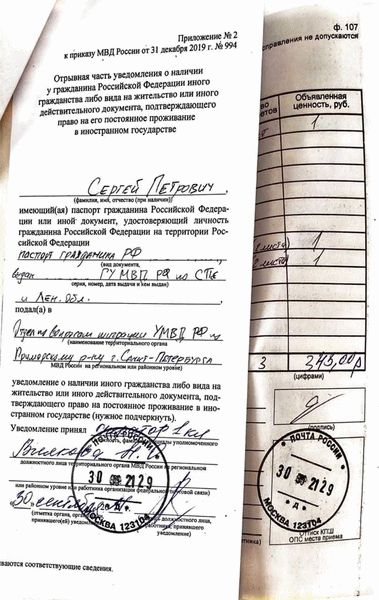 Приложение № 2
к приказу МВД России от 31 декабря 2019 г. № 994
Отрывная часть уведомления о наличии
у гражданина Российской Федерации иного
гражданства либо вида на жительство или иного
действительного документа, подтверждающего
право на его постоянное проживание
в иностранном государстве
Сергей Петрович,
(фамилия, имя, отчество (при наличии)
имеющий(ая) паспорт гражданина Российской Федера-
ции или иной документ, удостоверяющий личность
гражданина Российской Федерации на территории Рос-
сийской Федерации
паспорт гражданина РФ
(вид документа,
выдан ГУ МВД РФ по СПб
серия, номер, дата выдачи и кем выдан)
и Лен. обл.
подал(а) в
Отдел по вопросам миграции УМВД РФ по
(наименование территориального органа
Приморскому р-ну г. Санкт-Петербурга
МВД России на региональном или районном уровне)
уведомление о наличии иного гражданства либо вида на
жительство или иного действительного документа, под-
тверждающего право на постоянное проживание в ино-
странном государстве (нужное подчеркнуть).
Уведомление принял 1 кл
фамилия, инициалы уполномоченного
должностного лица территориального органа МВД России на региональном
или районном уровне или работника организации федеральной почтовой связи)
30 сентября
(отметка органа, должностного лица,
принявшего(ей) уведомление) принявших
уведомление)
ПОЧТА РОССИИ
30 2129
МОСКВА 123104
ваются соответствующие сведения.
ф. 107
справления не допускаются
Объявленная
ценность, руб.
1
1
1
3
(цифрами)
(подпись)
ПОЧТА РОССИИ
30 2129
Д
МОСКВА 123104
Оттиск КПШ
ОПС места приема
3